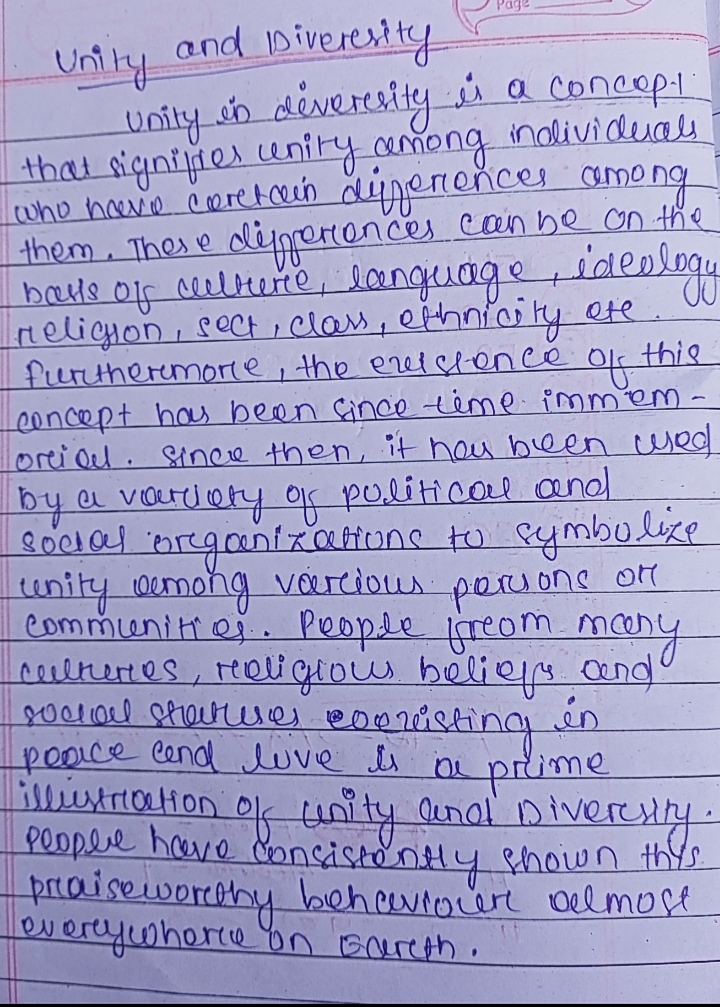 Page
Unity and Diveresity
Unity in diveresity is a concept
that signifies unity among individuals
who have ceretain differences among
them. These differences can be on the
basis of culture, language, ideology
religion, sect, class, ethnicity etc.
Furthermore, the existence of this
concept has been since time immem-
orial. Since then, it has been used
by a variety of political and
social organizations to symbolize
unity among various persons or
communities. People from many
cultures, religious beliefs and
social statuses coexisting in
peace and love is a prime
illustration of unity and Diversity.
People have consistently shown this
praiseworthy behaviour almost
everywhere on Earth.